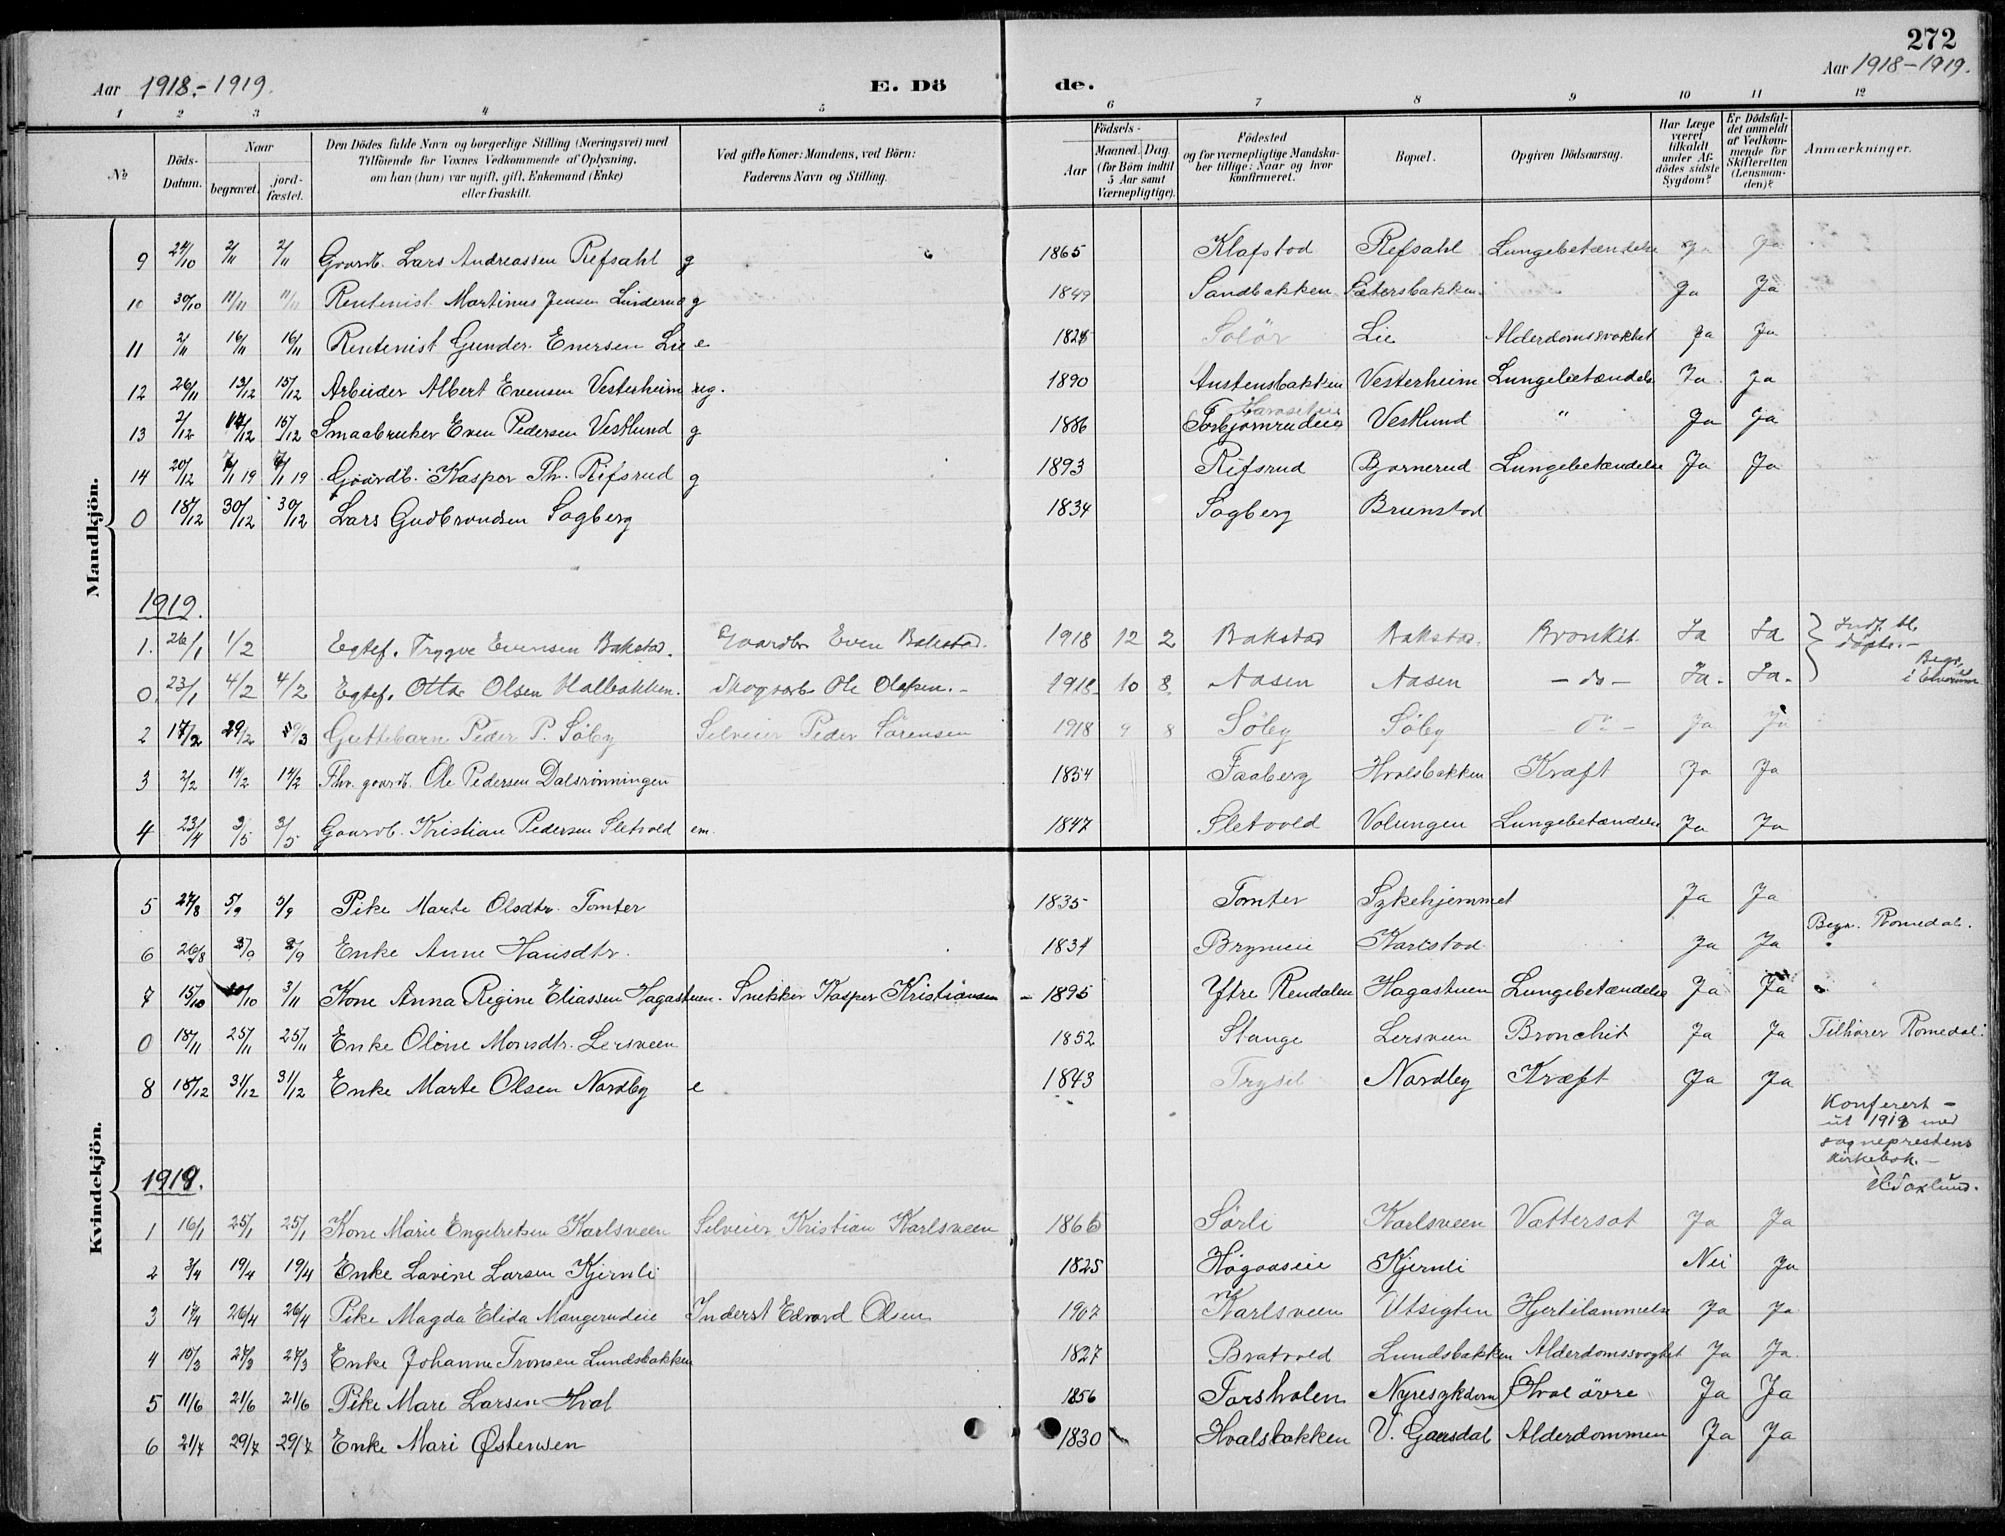 272
Aar 1918.-1919.
E. Dö de.
Aar 1918-1919.
1 2 3 4 5 6 7 8 9 10 11 12
№
Döds-Datum.
Naar
begravet.
jord-fæstet.
Den Dödes fulde Navn og borgerlige Stilling (Næringsvei) med
Tilföiende for Voxnes Vedkommende af Oplysning,
om han (hun) var ugift, gift, Enkemand (Enke)
eller fraskilt.
Ved gifte Koner: Mandens, ved Börn:
Faderens Navn og Stilling.
Födsels-
Aar
Maaned. Dag.
(for Börn indtil
5 Aar samt
Værnepligtige).
Födested
og for værnepligtige Mandska-
ber tillige: Naar og hvor
konfirmeret.
Bopæl.
Opgiven Dödsaarsag.
Har Læge
været
tilkaldt
under Af-
dödes sidste
Sygdom?
Er Dödsfal-
det anmeldt
af Vedkom-
mende for
Skifteretten
(Lensman-
den)?
Anmærkninger.
Mandkjön.
9 24/10 2/11 2/11 Gaardb. Lars Andreassen Refsahl g 1865 Klafstad Refsahl Lungebetændelse Ja Ja
10 30/10 11/11 11/11 Rentenist Martinus Jensen g 1849 Sandbakken Sætersbakken Ja Ja
11 2/11 16/11 16/11 Rentenist Gunder Enersen Lie e Solör Lie Alderdomssvakhet Ja Ja
12 26/11 13/12 15/12 Arbeider Albert Evensen Vesterheim ug. 1890 Austensbakken Vesterheim Lungebetændelse Ja Ja
13 2/12 15/12 Smaabruker Even Pedersen Vestlund g 1886 Torbjornrudeie Vestlund " Ja Ja
14 20/12 /1 19 /1 19 Gaardb. Kasper Th. Rifsrud g 1893 Rifsrud Bjornerud Lungebetændelse Ja Ja
0 18/12 30/12 30/12 Lars Gudbrandsen Sagberg 1834 Sagberg Brunstad
1919.
1. 26/1 1/2 Egtef. Trygve Evensen Bakstad. Gaardbr Even Bakstad. 1918 12 2 Bakstad Bakstad. Bronkit Ja Ja
døpt. -
0. 23/1 4/2 4/2 Egtef. Otto Olsen Halbakken. Skogsarb. Ole Olafsen.- 1918 10 8 Aasen Aasen - do - Ja. Ja. Begr. i Elverum
2 17/2 29/2 Guttebarn Peder P. Søby Selveier Peder Sørensen 1918 9 8 Søby Søby - Do - Ja Ja
3 2/2 14/2 14/2 Fhv. gaardb. Ole Pedersen Dalsrönningen 1854 Faaberg Hvalsbakken Kræft Ja Ja
4 23/4 3/5 3/5 Gaardb. Kristian Pedersen Sletvold em. 1847 Sletvold Volungen Lungebetændelse Ja Ja
Kvindekjön.
5 27/8 5/9 5/9 Pike Marte Olsdtr. Tomter 1835 Tomter Sykehjemmet Ja Ja
6 26/8 Enke Anne Hansdtr. 1834 Brynieie Karlstad Ja Ja Begr. Romedal.
7 15/10 3/11 Kone Anna Regine Eliassen Hagastuen. Snekker Kasper Kristiansen - 1895 Yttre Rendalen Hagastuen Lungebetændelse Ja Ja
0 18/11 25/11 25/11 Enke Oline Monsdtr. Lersveen 1852 Stange Lersveen Bronchit Ja Ja Tilhører Romedal.
8 18/12 31/12 31/12 Enke Marte Olsen Nordby e 1843 Trysil Nordby Kræft Ja Ja
Konferert -
ut 1918 med
sogneprestens
kirkebok. -
1919.
1 16/1 25/1 25/1 Kone Marie Engebretsen Karlsveen Selveier Kristian Karlsveen 1866 Sørli Karlsveen Vattersot Ja Ja
2 3/4 19/4 19/4 Enke Lovine Larsen Kjernli 1825 Høgaaseie Kjernli Nei Ja
3 17/4 26/4 26/4 Pike Magda Elida Mangerudeie Inderst Edvard Olsen 1907 Karlsveen Utsigten Hjertelammelse Ja Ja
4 15/3 27/3 27/3 Enke Johanne Tronsen Lundsbakken 1827 Bratvold Lundsbakken Alderdomssvaghet Ja Ja
5 11/6 21/6 21/6 Pike Mari Larsen Hval 1856 Forsholen Nyresykdom Hval övre Ja Ja
6 21/7 29/7 29/7 Enke Mari Østensen 1830 Hvalsbakken V. Gausdal Alderdommen Ja Ja